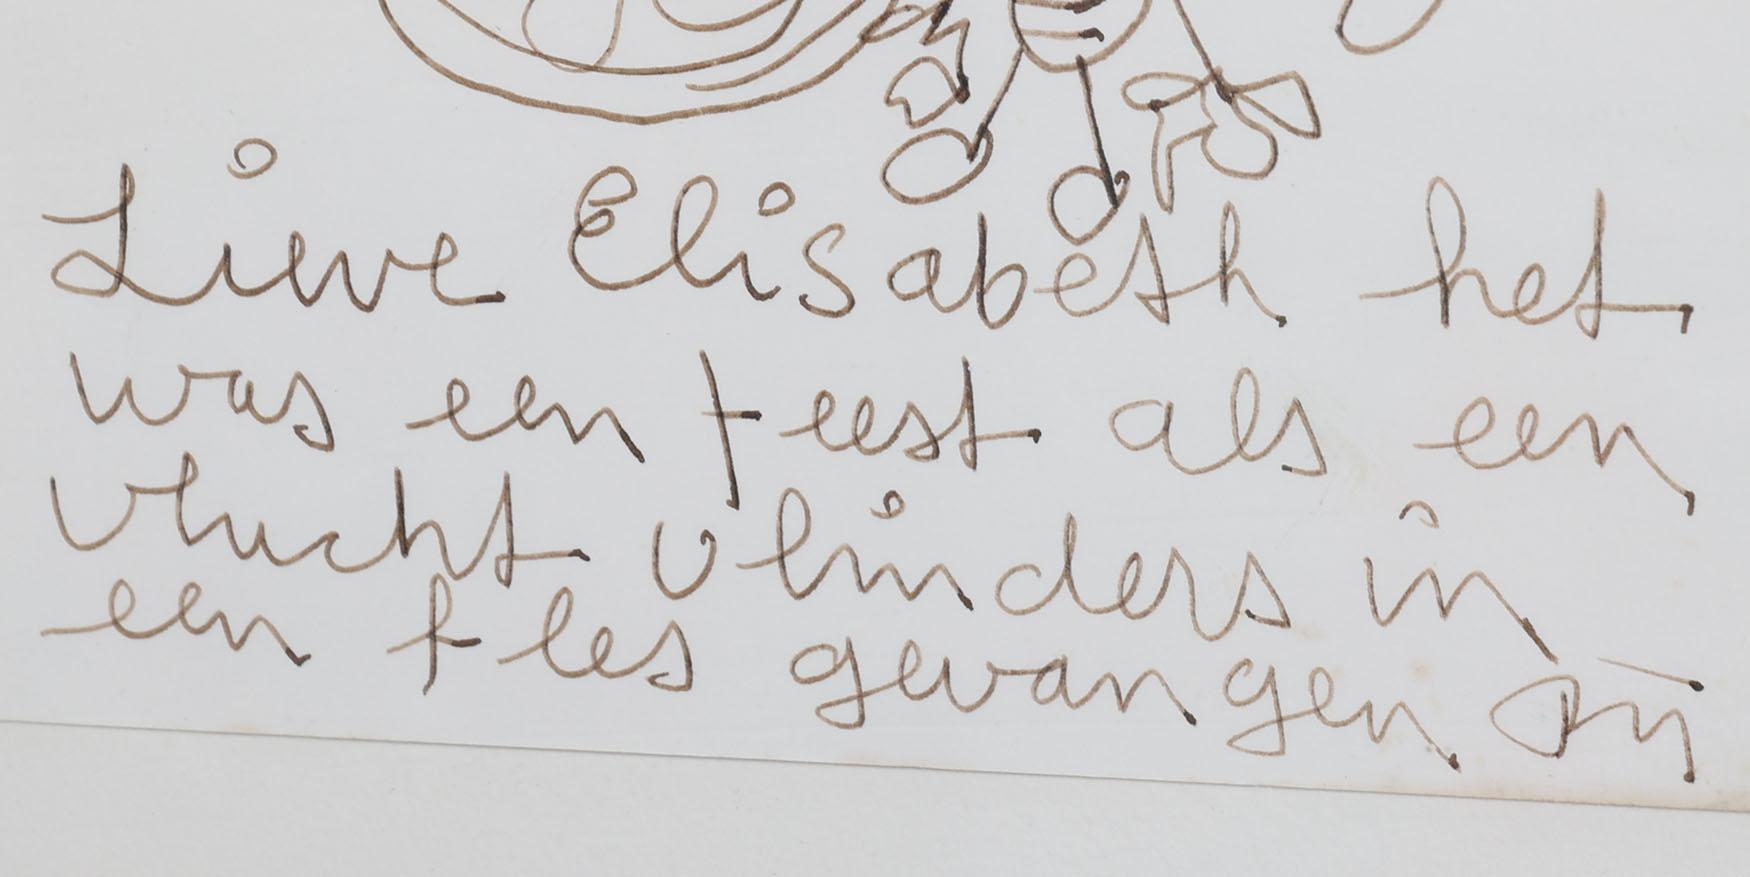 Lieve Elisabeth het
was een feest als een
vlucht vlinders in
een fles gevangen